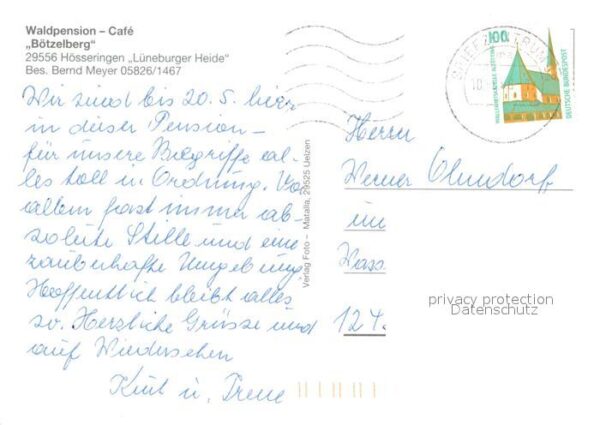 Waldpension – Café
„Bötzelberg"
29556 Hösseringen „Lüneburger Heide"
Bes. Bernd Meyer 05826/1467
Wir sind bis 20.5. hier
in dieser Pension –
für unsere Begriffe al-
les toll in Ordnung. Vor
allem fast immer ab-
solute Stille und eine
zauberhafte Umgebung.
Hoffentlich bleibt alles
so. Herzliche Grüsse und
auf Wiedersehen
Kurt u. Irene
Verlag Foto – Matalla, 29525 Uelzen
BRIEFZENTRUM
100
WALLFAHRTSKAPELLE ALTÖTTING
DEUTSCHE BUNDESPOST
Herrn
Werner Ohndorf
im
Wass
124.
privacy protection
Datenschutz